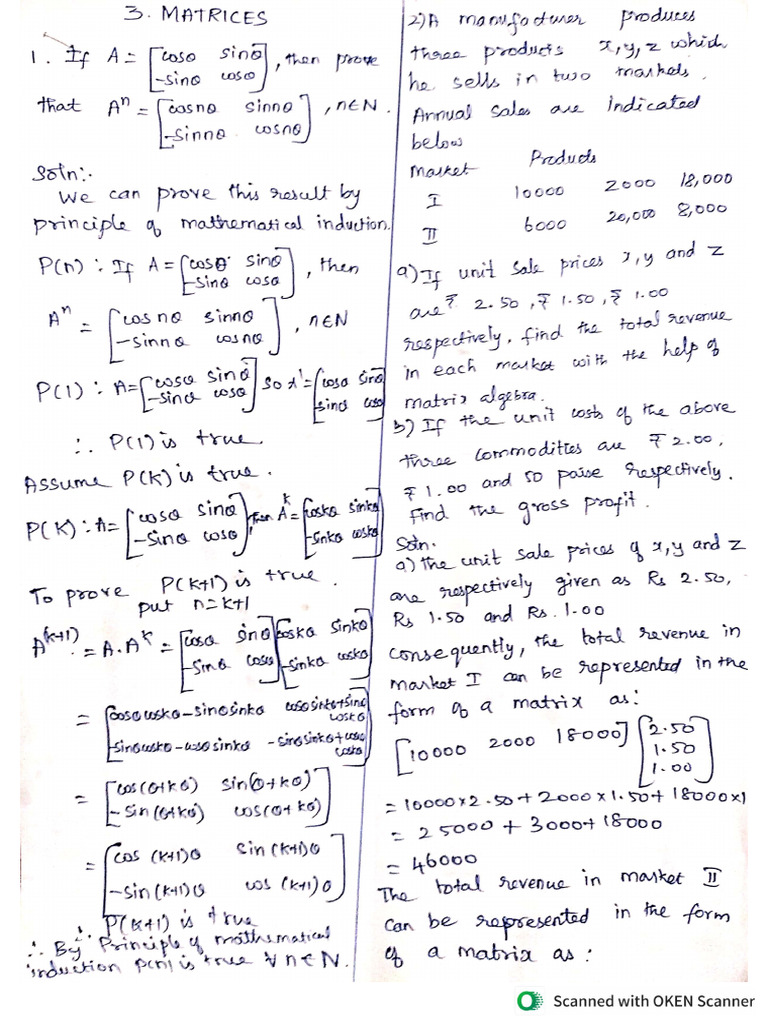 3. MATRICES
1. If A = [cosθ sinθ
-sinθ cosθ], then prove
that Aⁿ = [cosnθ sinnθ
-sinnθ cosnθ], n∈N.
Soln:-
We can prove this result by
principle of mathematical induction.
P(n) : If A = [cosθ sinθ
-sinθ cosθ], then
Aⁿ = [cosnθ sinnθ
-sinnθ cosnθ], n∈N
P(1) : A = [cosθ sinθ
-sinθ cosθ] So A¹ = [cosθ sinθ
-sinθ cosθ]
∴ P(1) is true.
Assume P(K) is true.
P(K) : A = [cosθ sinθ
-sinθ cosθ], then Aᵏ = [coskθ sinkθ
-sinkθ coskθ]
To prove P(K+1) is true.
put n=k+1
A⁽ᵏ⁺¹⁾ = A.Aᵏ = [cosθ sinθ
-sinθ cosθ] [coskθ sinkθ
-sinkθ coskθ]
= [cosθcoskθ-sinθsinkθ cosθsinkθ+sinθ
coskθ
-sinθcoskθ-cosθsinkθ -sinθsinkθ+cosθ
coskθ]
= [cos(θ+kθ) sin(θ+kθ)
-sin(θ+kθ) cos(θ+kθ)]
= [cos(k+1)θ sin(k+1)θ
-sin(k+1)θ cos(k+1)θ]
∴ P(k+1) is true
∴ By Principle of mathematical
induction p(n) is true ∀ n∈N.
2) A manufacturer produces
three products x,y,z which
he sells in two markets.
Annual sales are indicated
below
Market Products
I 10000 2000 18,000
II 6000 20,000 8,000
a) If unit sale prices x,y and z
are ₹ 2.50, ₹ 1.50, ₹ 1.00
respectively, find the total revenue
in each market with the help of
matrix algebra.
b) If the unit costs of the above
three commodities are ₹ 2.00,
₹ 1.00 and 50 paise respectively.
Find the gross profit.
Soln.
a) The unit sale prices of x,y and z
are respectively given as Rs 2.50,
Rs 1.50 and Rs. 1.00
consequently, the total revenue in
market I can be represented in the
form of a matrix as:
[10000 2000 18000] [2.50
1.50
1.00]
= 10000×2.50+2000×1.50+18000×1
= 25000+3000+18000
= 46000
The total revenue in market II
can be represented in the form
of a matrix as:
Scanned with OKEN Scanner